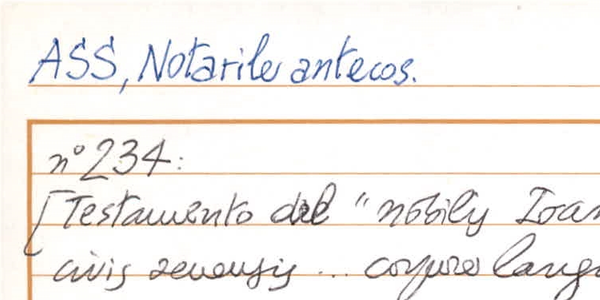 ASS, Notarile antecos.
n° 234:
[Testamento del "nobilis Ioan
civis senensis ... corpore langu